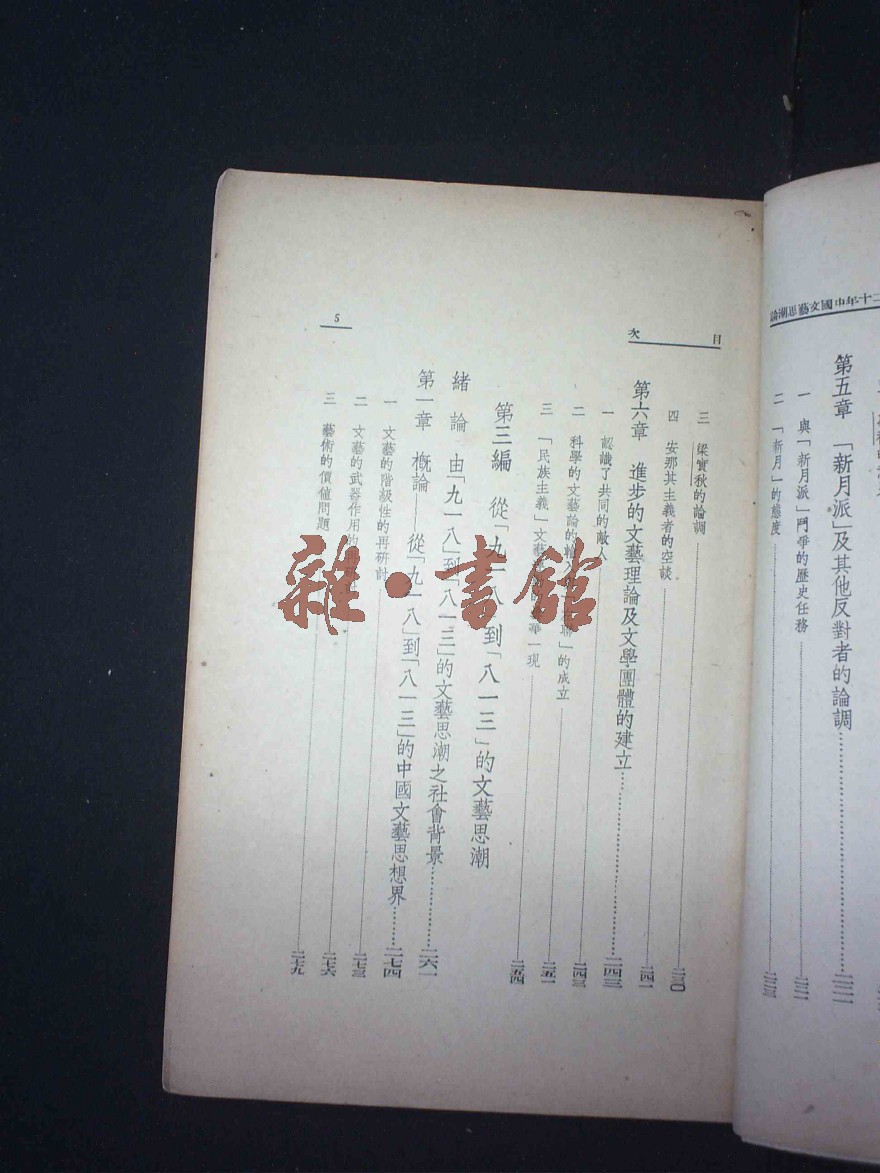 二十年中國文藝思潮論
第五章 「新月派」及其他反對者的論調 二二一
一 與「新月派」鬥爭的歷史任務 二二一
二 「新月」的態度 二二三
目次
三 梁實秋的論調 二三〇
四 安那其主義者的空談 二四一
第六章 進步的文藝理論及文學團體的建立 二四三
一 認識了共同的敵人 二四三
二 科學的文藝論的輸入 聯」的成立 二五一
三 「民族主義」文藝 華一現 二五四
第三編 從「九一八」到「八一三」的文藝思潮
緒論 由「九一八」到「八一三」的文藝思潮之社會背景 二六一
第一章 概論——從「九一八」到「八一三」的中國文藝思想界 二七四
一 文藝的階級性的再研討 二七三
二 文藝的武器作用的 二七六
三 藝術的價値問題 二七九
5
雜·書館